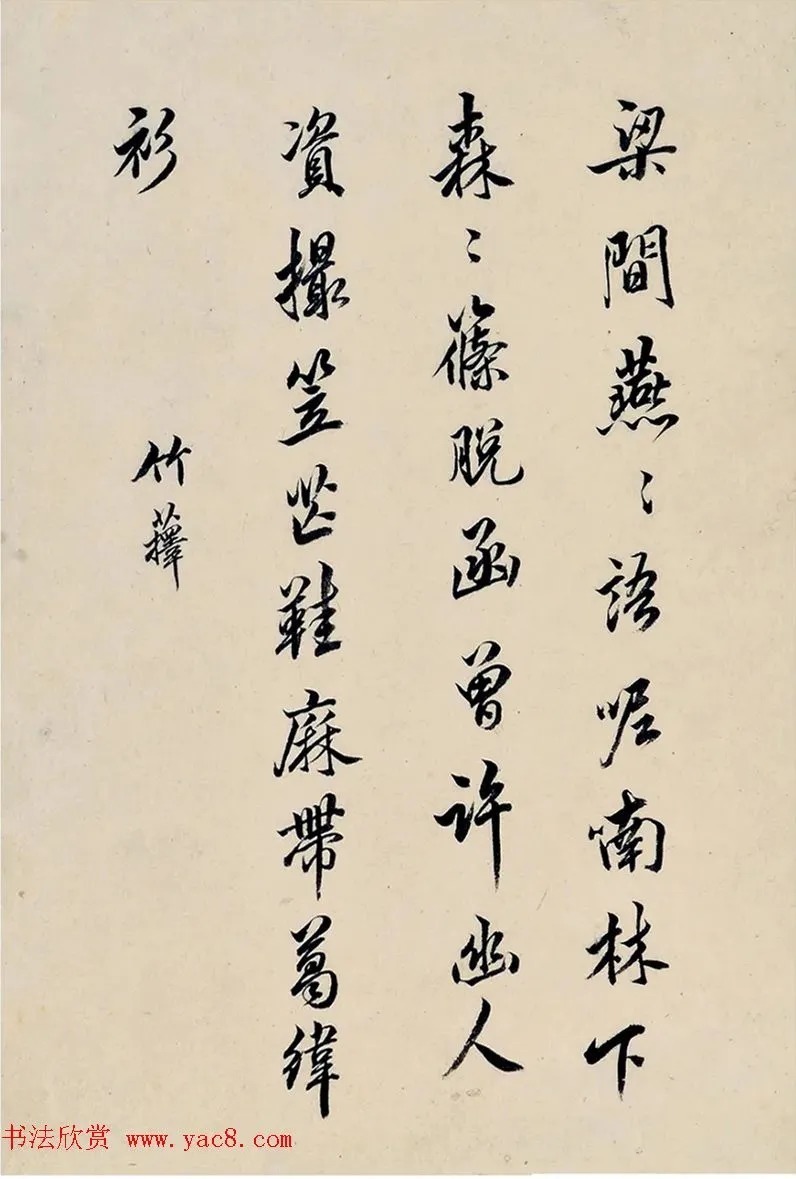 梁間燕〻語呢喃林下
森〻篠脫函曾許幽人
資撮笠芒鞋麻帶葛緯
衫
竹蘀
书法欣赏 www.yac8.com